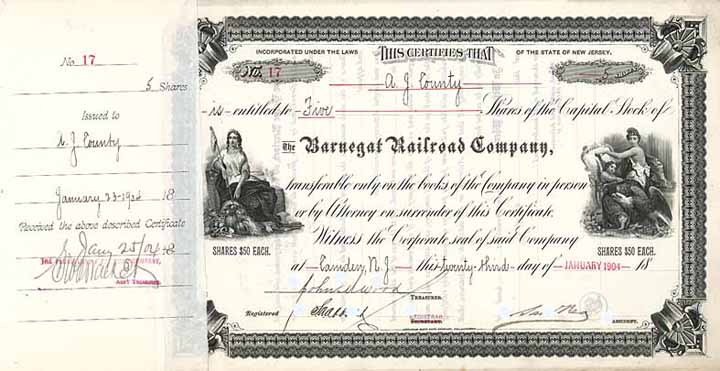 No. 17
5 Shares
Issued to
A. J. County
January 23-1904 18
Received the above described Certificate
Jany 25/04 18
ASST TREASURER.
INCORPORATED UNDER THE LAWS THIS CERTIFIES THAT OF THE STATE OF NEW JERSEY.
No. 17
5
A. J. County
is entitled to Five Shares of the Capital Stock of
The Barnegat Railroad Company,
transferable only on the books of the Company in person
or by Attorney on surrender of this Certificate.
Witness the Corporate seal of said Company
at Camden, N.J. this twenty-third day of JANUARY 1904 18
SHARES $50 EACH.
SHARES $50 EACH.
TREASURER.
Registered
REGISTRAR
SECRETARY.